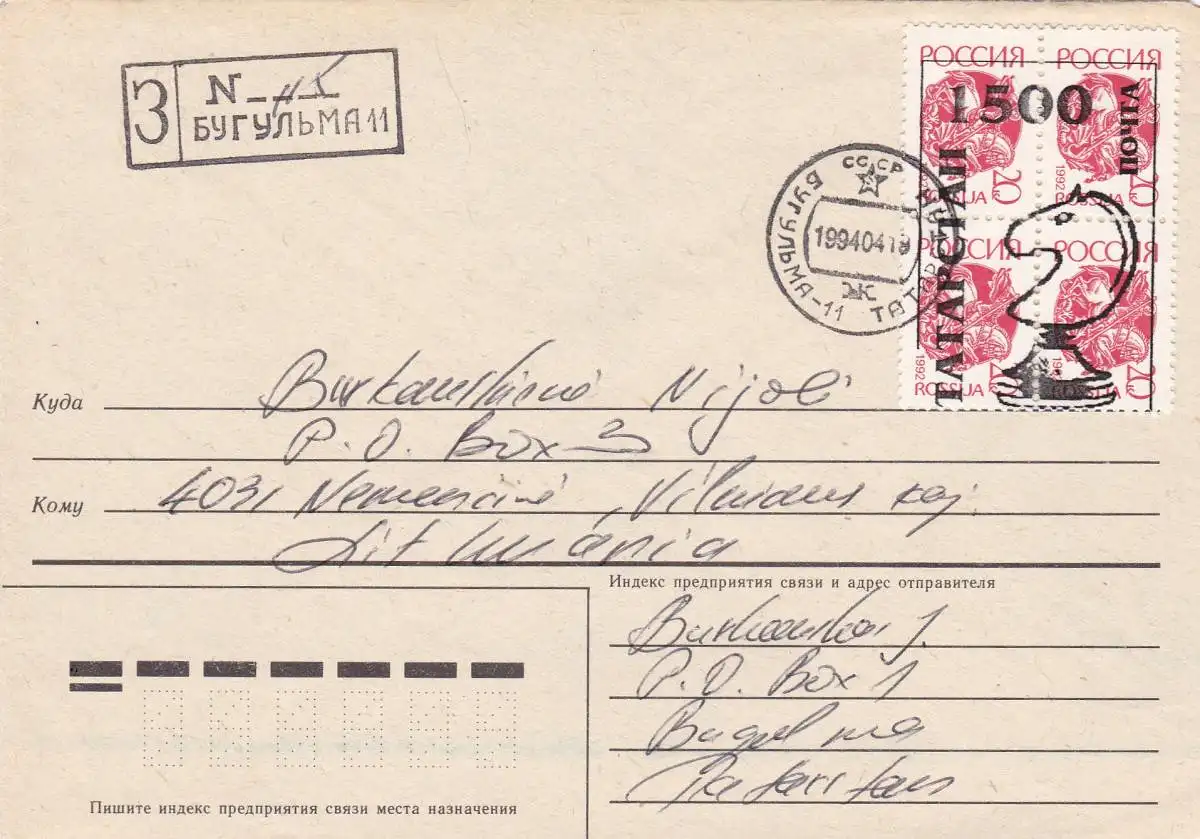 З
N 45
БУГУЛЬМА 11
СССР
БУГУЛЬМА-11 ТАТАРСТАН
19940419
Ж
РОССИЯ РОССИЯ
1500
ПОЧТА
ТАТАРСТАН
1992 20к 1992 20к
ROSSIJA ROSSIJA
РОССИЯ РОССИЯ
1992 20к 1992 20к
ROSSIJA ROSSIJA
Куда
P.O. Box 3
Кому 4031 Nemenčinė, Vilniaus raj.
Lithuania
Индекс предприятия связи и адрес отправителя
P.O. Box 1
Bugulma
Tatarstan
Пишите индекс предприятия связи места назначения